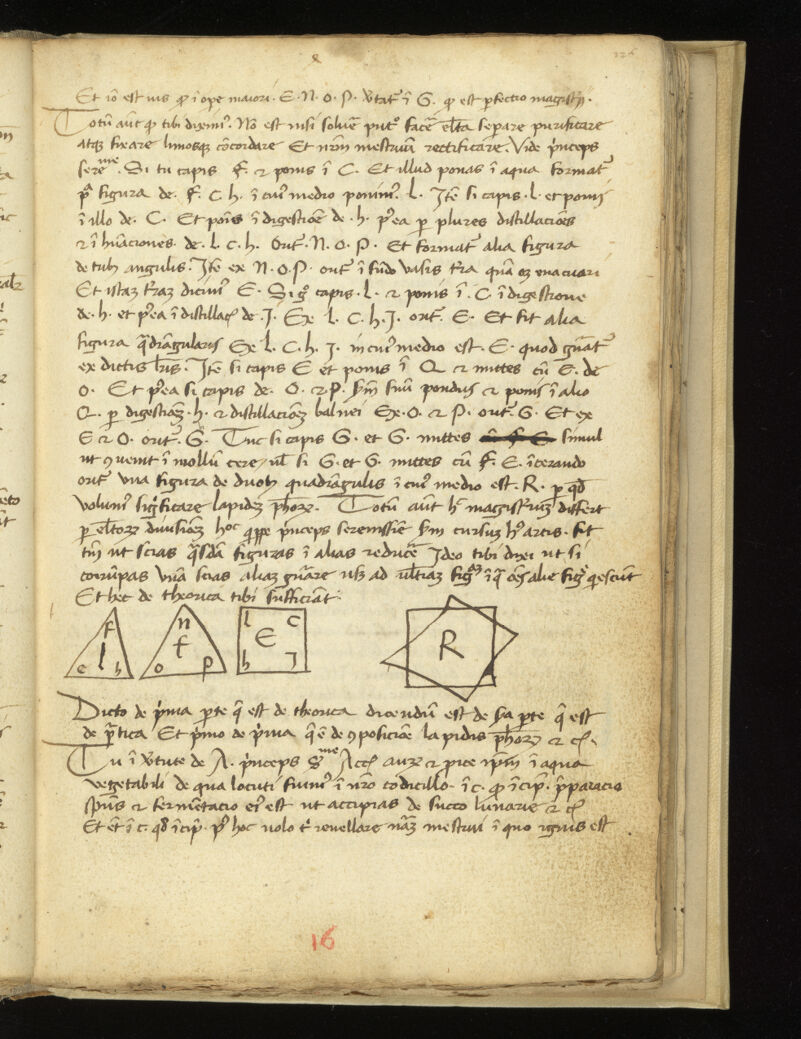 Et iō est ius ꝙ ī ope maiori · E · N · O · P · ī G · ꝙ est perfectio magistrij ·
Totū aūt ꝙ tibi diximꝰ · Nō est nisi soluē facē elta separe purificare
atqꝫ fixare limosqꝫ cōcordare Et nrm̄ mestruū rectificare · Vide pͥnceps
sereme · Si tu capis f · ⁊ ponis ī C · Et illud ponas ī aqua format
figura de · f · C · h · ī cuiꝰ medio ponimꝰ · L · Itē si capis · l · et ponis
ī illo de · C · Et poīs ī digestiōe de · h · pꝰea ꝑ plures distillacōes
⁊ ī huaciones · de · l · c · h · Orit · N · O · P · Et format alia figura
de tribꝫ angulis · Itē ex N · O · P · orit ī fūdo vasis tr̄a quā oꝫ euacuari
Et istaꝫ tr̄aꝫ dicimꝰ E · Si gͦ capis · l · ⁊ ponis ī · C ī digestione
de · h · et pꝰea ī distillacō de · I · Ex l · C · h · I · orit · E · Et fit alia
figura q̄drāgularis Ex l · C · h · I · in cuiꝰ medio est · E · quod gn̄at
ex dictis lr̄is · Itē si capis E et ponis ī Q ⁊ mittes cū E · de
O · Et pꝰea si capis de · O · ⁊ P · sm̄ suū pondus ⁊ ponis ī alio
Q · ꝑ digestiōeꝫ · h · ⁊ distillaciōeꝫ balnei Ex · O · ⁊ P · orit · G · Et ex
E ⁊ O · orit · G · Tūc si capis G · et G · mittes simul
ut ꝯueīt ī mollū cere, ul̄ si G · et G · mittes cū f · E · īcerando
orit una figura de duobꝫ quadrāgulis ī cuiꝰ medio est · R · ꝑ qd̄
volumꝰ significare lapideꝫ ph̄oꝝ · Totū aūt h̄ magistriuꝫ differt
ꝑ eltoꝝ diuisiōeꝫ hoc pͥnceps serenissīe sm̄ cursuꝫ hꝰ artis · fit
tm̄ ut scias q̄sdā figuras ī alias reducē Ideo tibi ut si
corrūpas unā scias aliaꝫ gn̄are usꝫ ad ultīaꝫ figᵃꝫ ī q̄ oēs alie figᵉ q̄escūt
Et hec de theorica tibi sufficiāt ·
f
c l h
n
f
o p
l c
E
h I
R
Dicto de pͥma parte q̄ est de theorica dicendū est de s̄a parte q̄ est
de pᵃctica Et pͥmo de pͥma q̄ ē de ꝯposiciōe lapidis ph̄oꝝ ⁊ c̄ ·
Tu ī v̄tute de A · pͥnceps sme Accē auꝝ ⁊ pice ipm̄ ī aqua
vegetabili de qua locuti suimꝰ ī nr̄o codicillo · ī c · ꝙ īcip · pͥparacio
spūs ⁊ fermētacio eiꝰ est ut accipias de succo lunarie ⁊ c̄
Et ēt ī c · qd̄ īcip · pꝰ hoc uolo tͥ reuellare nāꝫ mestrui ī quo ignis est
16